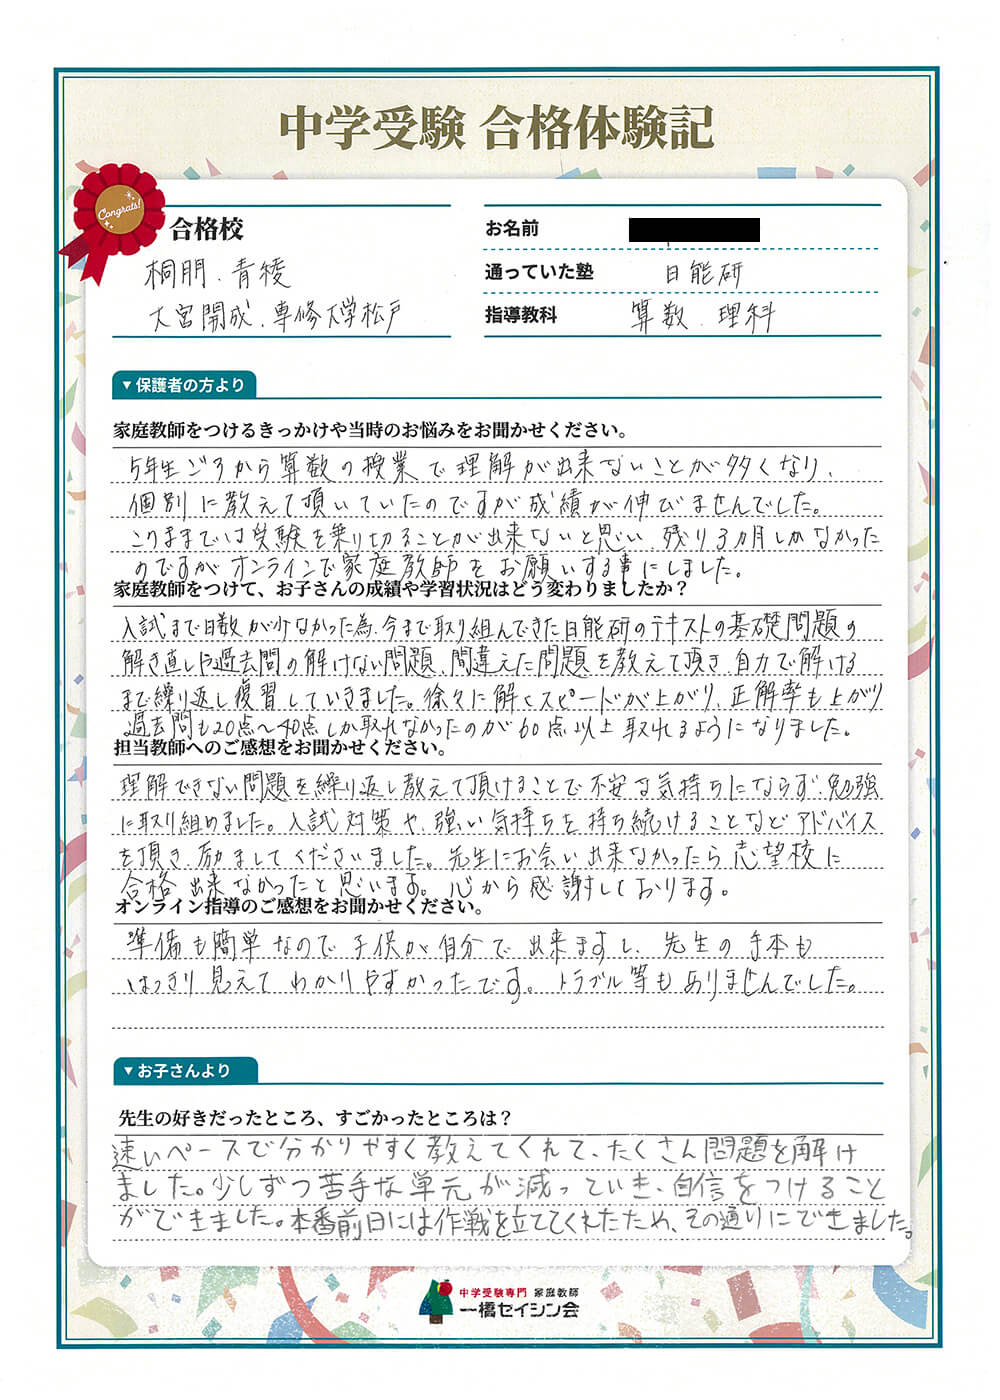 中学受験 合格体験記
Congrats!
合格校
桐朋、青稜
大宮開成、専修大学松戸
お名前
通っていた塾 日能研
指導教科 算数、理科
▼保護者の方より
家庭教師をつけるきっかけや当時のお悩みをお聞かせください。
5年生ごろから算数の授業で理解が出来ないことが多くなり、
個別に教えて頂いていたのですが成績が伸びませんでした。
このままでは受験を乗り切ることが出来ないと思い、残り3カ月しかなかった
のですがオンラインで家庭教師をお願いする事にしました。
家庭教師をつけて、お子さんの成績や学習状況はどう変わりましたか？
入試まで日数が少なかった為、今まで取り組んできた日能研のテキストの基礎問題の
解き直しや過去問の解けない問題、間違えた問題を教えて頂き、自力で解ける
まで繰り返し復習していきました。徐々に解くスピードが上がり、正解率も上がり
過去問も20点〜40点しか取れなかったのが60点以上取れるようになりました。
担当教師へのご感想をお聞かせください。
理解できない問題を繰り返し教えて頂けることで不安な気持ちにならず、勉強
に取り組めました。入試対策や、強い気持ちを持ち続けることなどアドバイス
を頂き、励ましてくださいました。先生にお会い出来なかったら志望校に
合格出来なかったと思います。心から感謝しております。
オンライン指導のご感想をお聞かせください。
準備も簡単なので子供が自分で出来ますし、先生の手本も
はっきり見えてわかりやすかったです。トラブル等もありませんでした。
▼お子さんより
先生の好きだったところ、すごかったところは？
速いペースで分かりやすく教えてくれて、たくさん問題を解け
ました。少しずつ苦手な単元が減っていき、自信をつけること
ができました。本番前日には作戦を立ててくれたため、その通りにできました。
中学受験専門 家庭教師
一橋セイシン会